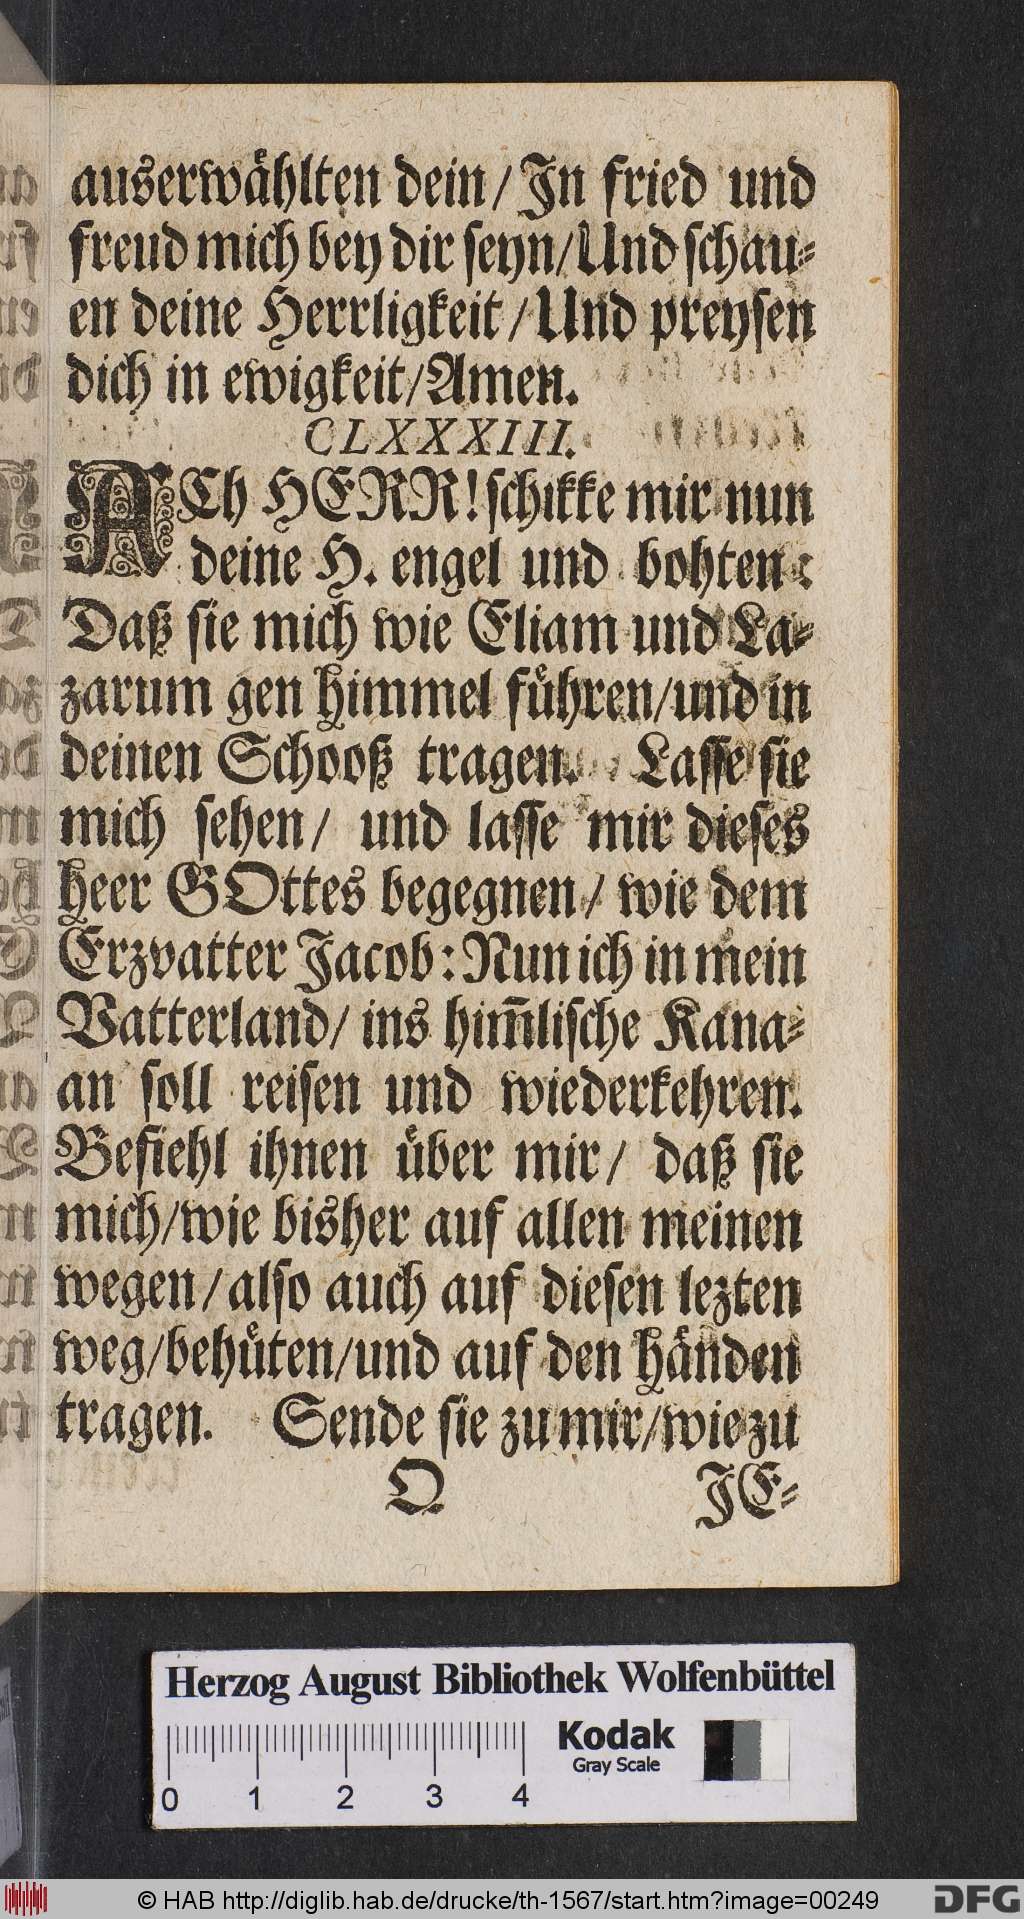 auserwåhlten dein/ In fried und
freud mich bey dir seyn/ Und schau-
en deine Herrligkeit/ Und preysen
dich in ewigkeit/ Amen.
CLXXXIII.
ACh HERR! schikke mir nun
deine H. engel und bohten:
Daß sie mich wie Eliam und La-
zarum gen himmel fuͤhren/ und in
deinen Schooß tragen. Lasse sie
mich sehen/ und lasse mir dieses
heer GOttes begegnen/ wie dem
Erzvatter Jacob: Nun ich in mein
Vatterland/ ins him̃lische Kana-
an soll reisen und wiederkehren.
Befiehl ihnen uͤber mir/ daß sie
mich/ wie bisher auf allen meinen
wegen/ also auch auf diesen lezten
weg/ behuͤten/ und auf den haͤnden
tragen. Sende sie zu mir/ wie zu
O JE-
Herzog August Bibliothek Wolfenbüttel
Kodak
Gray Scale
0 1 2 3 4
© HAB http://diglib.hab.de/drucke/th-1567/start.htm?image=00249
DFG